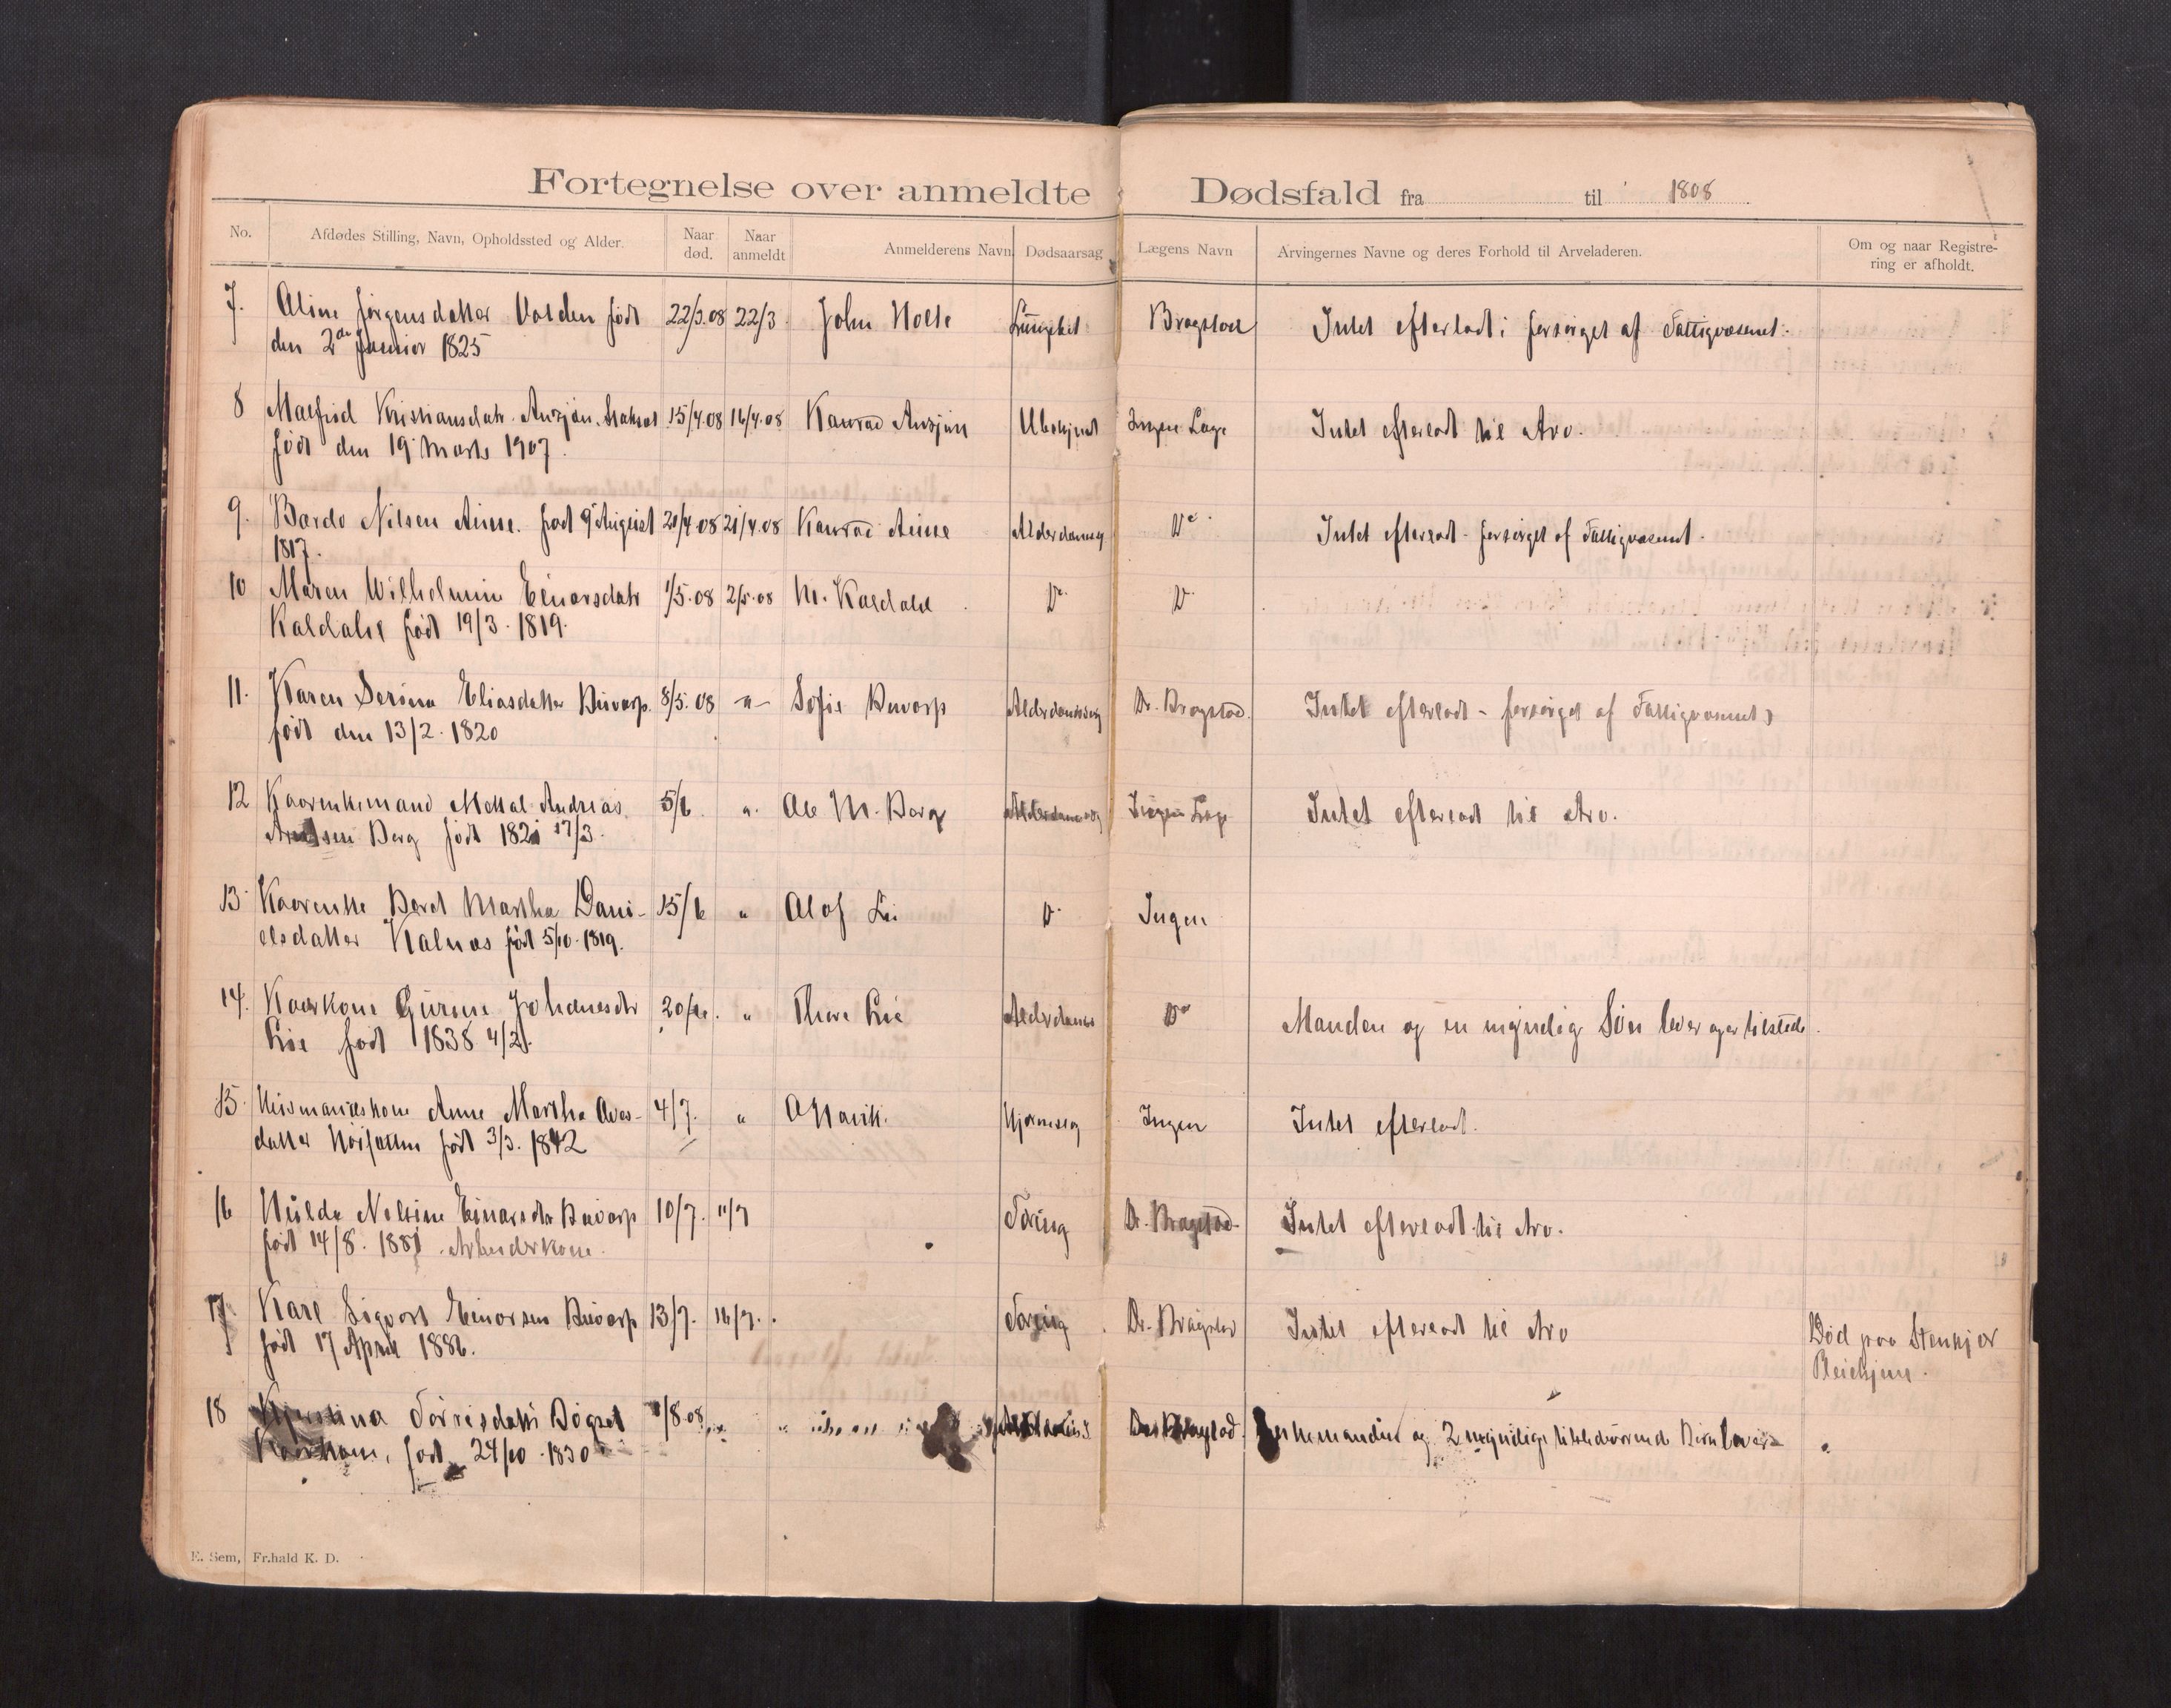 Fortegnelse over anmeldte Dødsfald fra til 1808
No. Afdødes Stilling, Navn, Opholdssted og Alder. Naar død. Naar anmeldt Anmelderens Navn Dødsaarsag Lægens Navn Arvingernes Navne og deres Forhold til Arveladeren. Om og naar Registrering er afholdt.
7. Aline Jørgensdatter Valden født 22/3.08 22/3 John Holte Bragstad Intet efterladt; forsørget af Fattigvæsenet.
den 2den Januar 1825
8 Malfrid Kristiansdatr. født 15/4.08 16/4.08 Konrad Ubekjendt Ingen Læge Intet efterladt til Arv.
født den 19 Marts 1907.
9. Bardo Nilsen Aune. født 9 August 20/4.08 21/4.08 Konrad Aune Alderdomsvag Do Intet efterladt - forsørget af Fattigvæsenet.
1817.
10 Maren Wilhelmine Einarsdatr 1/5.08 2/5.08 M. Kaldahl Do Do
Kaldahl født 19/3. 1819.
11. Karen Serina Eliasdatter Buvarp. 8/5.08 -"- Sofie Buvarp Alderdomsvag Dr. Bragstad. Intet efterladt - forsørget af Fattigvæsenet
født den 13/2. 1820
12 Kaarenkemand Mektal Andreas 5/6 " Ole M. Berg Alderdomsvag Ingen Læge Intet efterladt til Arv.
Berg født 1821 17/3.
13 Kaarenke Beret Martha Dani- 15/6 " Olof Lie Do Ingen
elsdatter Kalnes født 5/10. 1819.
14. Kaarkone Gurine Johanesdtr 20/6. " Thore Lie Alderdoms Do Manden og en myndig Søn lever og er tilstede.
Lie født 1838 4/2.
15. Husmandskone Anne Martha 4/7. " Ingen Intet efterladt.
datter født 3/3. 1842
16 Hulda Nelsine Einarsdtr Buvarp 10/7. 11/7 Tæring Dr. Bragstad Intet efterladt til Arv.
født 14/8. 1881. Arbeiderkone.
17. Karl Sigvart Einarsen Buvarp 13/7. 16/7. Tæring Dr. Bragstad Intet efterladt til Arv Død paa Stenkjær
født 17 April 1886.
18 Torrisdatr 8.08 Bragstad. Enkemanden og 2 myndige tilstedeværende Børn lever
Kaarkone, født 24/10. 1830
E. Sem, Fr.hald K. D.